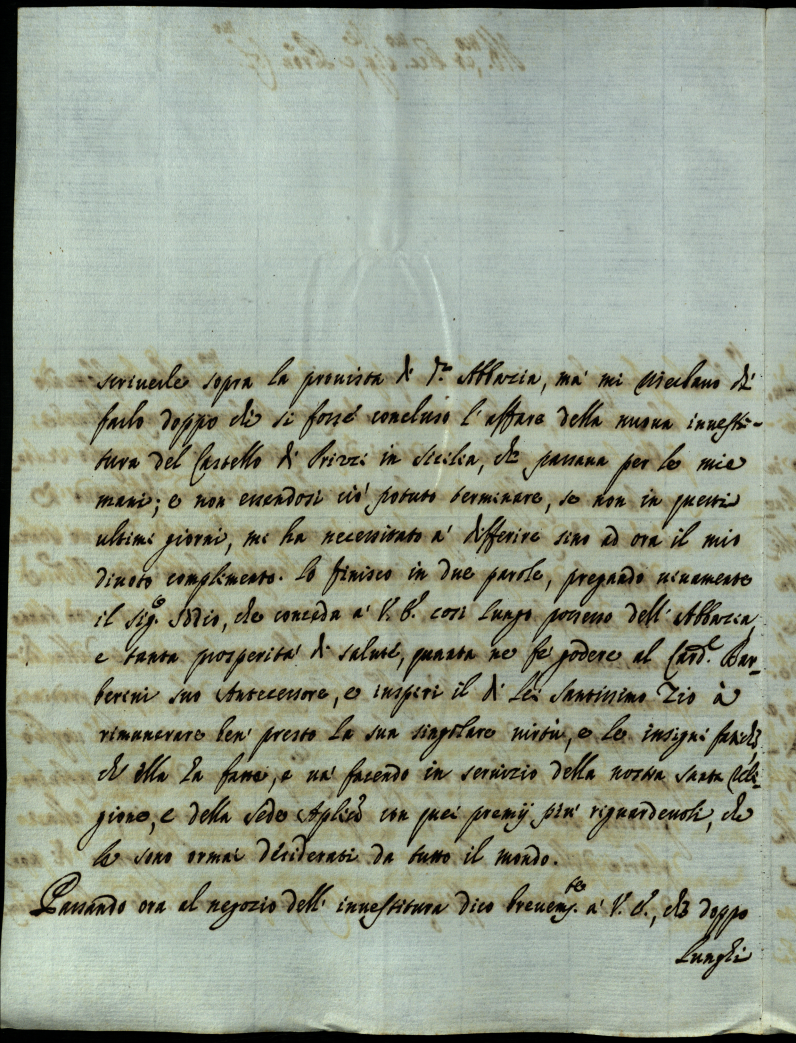 scriverle sopra la provista di d.ª Abbazia, mà mi riserbavo di
farlo doppo che si fosse concluso l'affare della nuova investi-
tura del Castello di Prizzi in Sicilia, che passava per le mie
mani; e non essendosi ciò potuto terminare, se non in questi
ultimi giorni, mi ha necessitato à differire sino ad ora il mio
divoto complimento. Lo finisco in due parole, pregando vivamente
il Sig.e Iddio, che conceda à V. E. così lungo possesso dell'Abbazia,
e tanta prosperità di salute, quanta ne fè godere al Card.e Bar-
berini suo Antecessore, e inspiri il di Lei Santissimo Zio à
rimunerare ben presto la sua singolare virtù, e le insigni fatiche
ch'ella hà fatte, e và facendo in servizio della nostra santa Reli-
gione, e della Sede Aplica con quei premij più riguardevoli, che
le sono ormai desiderati da tutto il mondo.
Passando ora al negozio dell'investitura dico brevem.te à V. E., che doppo
lunghi